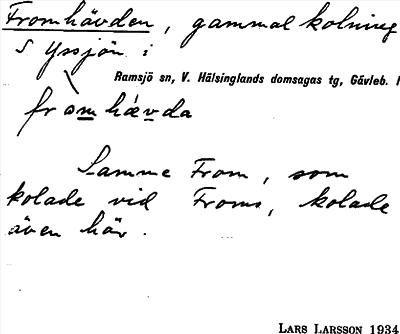 Fromhävden, gammal kolning
S Yssjön i
Ramsjö sn, V. Hälsinglands domsagas tg, Gävleb. l
fromhævda
Samme From, som
kolade vid Froms, kolade
även här.
LARS LARSSON 1934